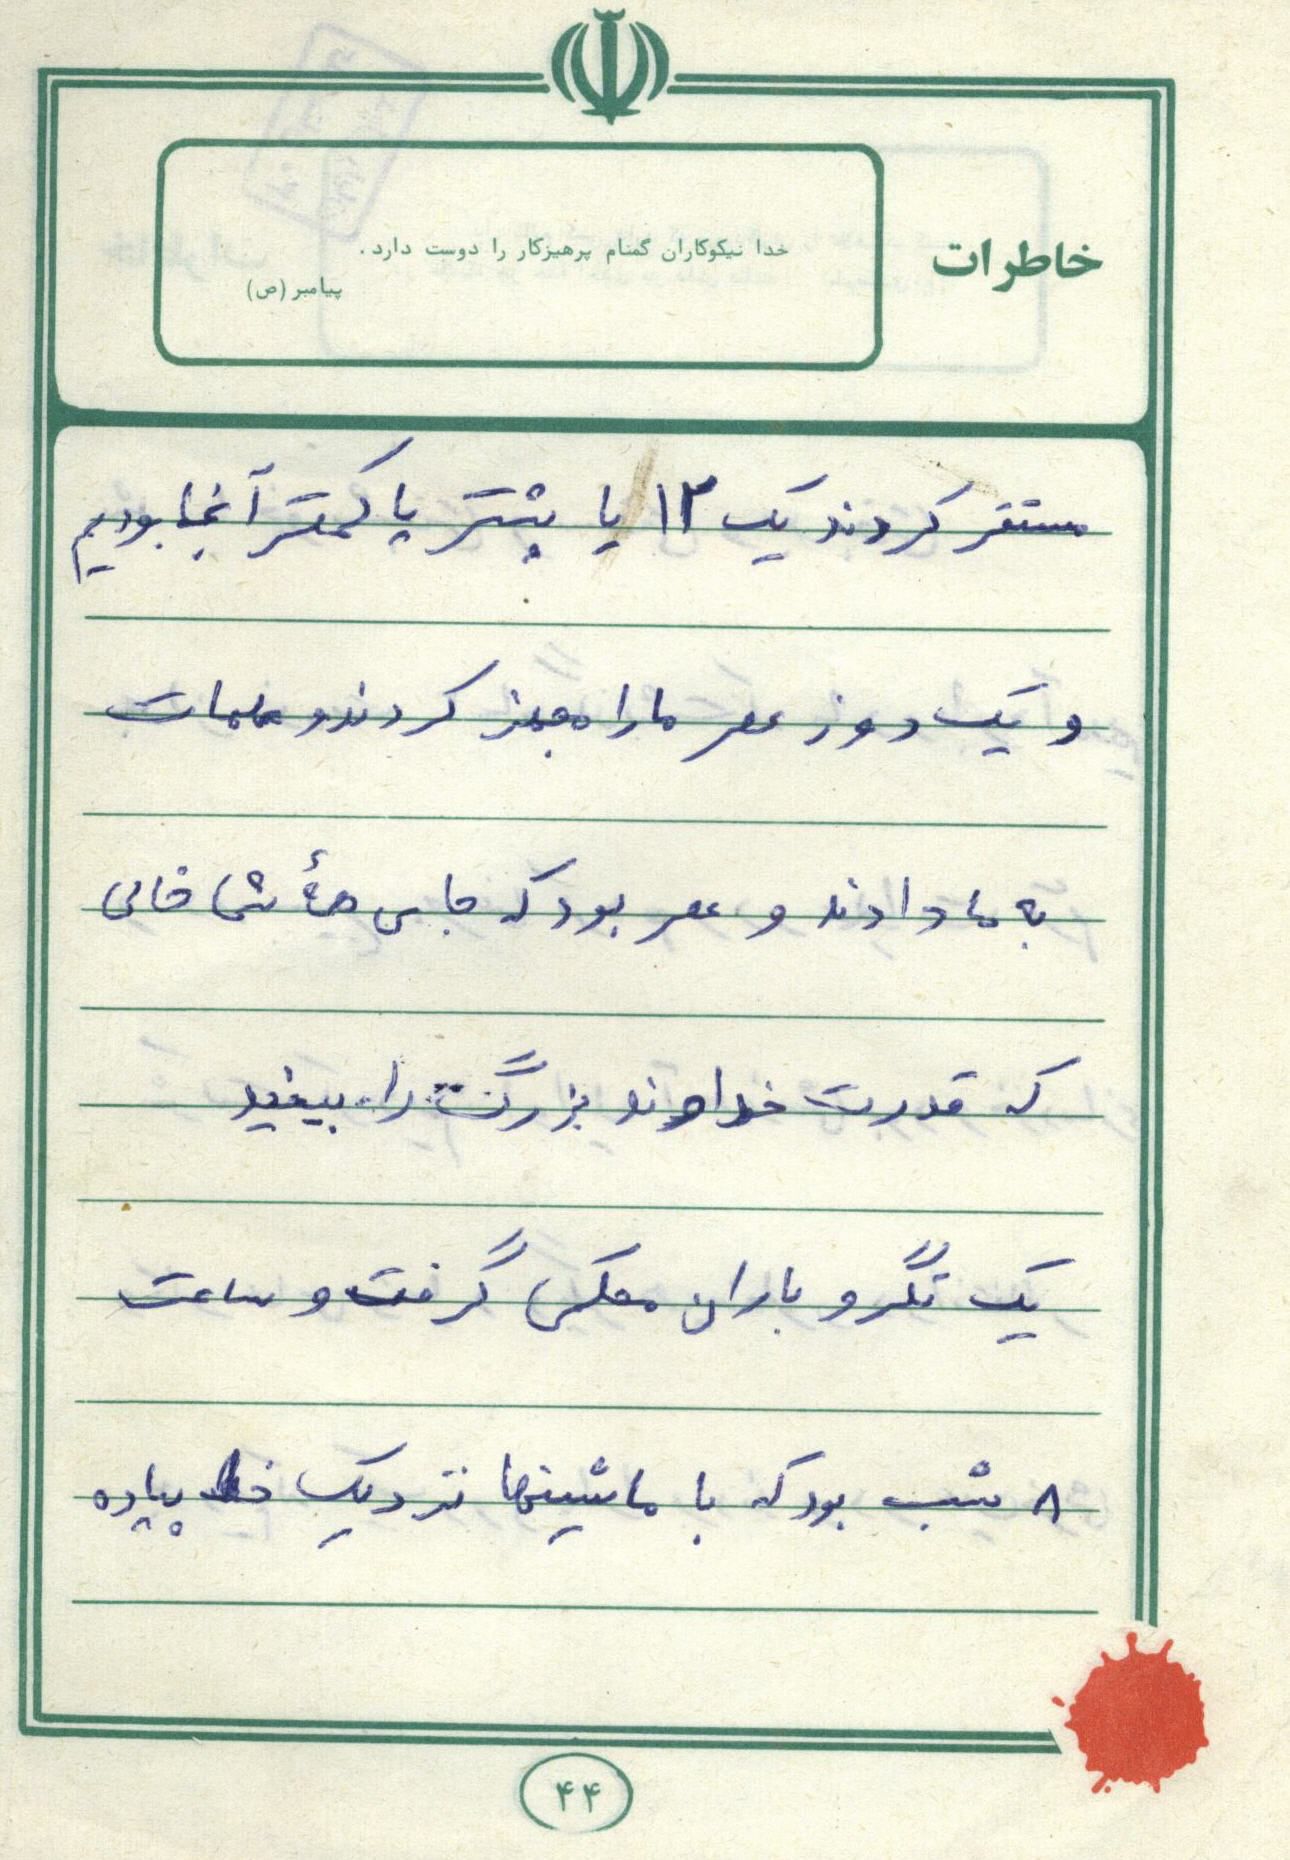 خاطرات
خدا نیکوکاران گمنام پرهیزکار را دوست دارد .
پیامبر (ص)
مستقر کردند یک ۱۲ یا بیشتر یا کمتر آنجا بودیم
و یک روز عصر ما را مجهز کردند و مهمات
به ما دادند و عصر بود که جای همهٔ شما خالی
که قدرت خداوند بزرگ را ببینید
یک تگرو باران محکمی گرفت و ساعت
۸ شب بود که با ماشینها نزدیک خط پیاده
۴۴